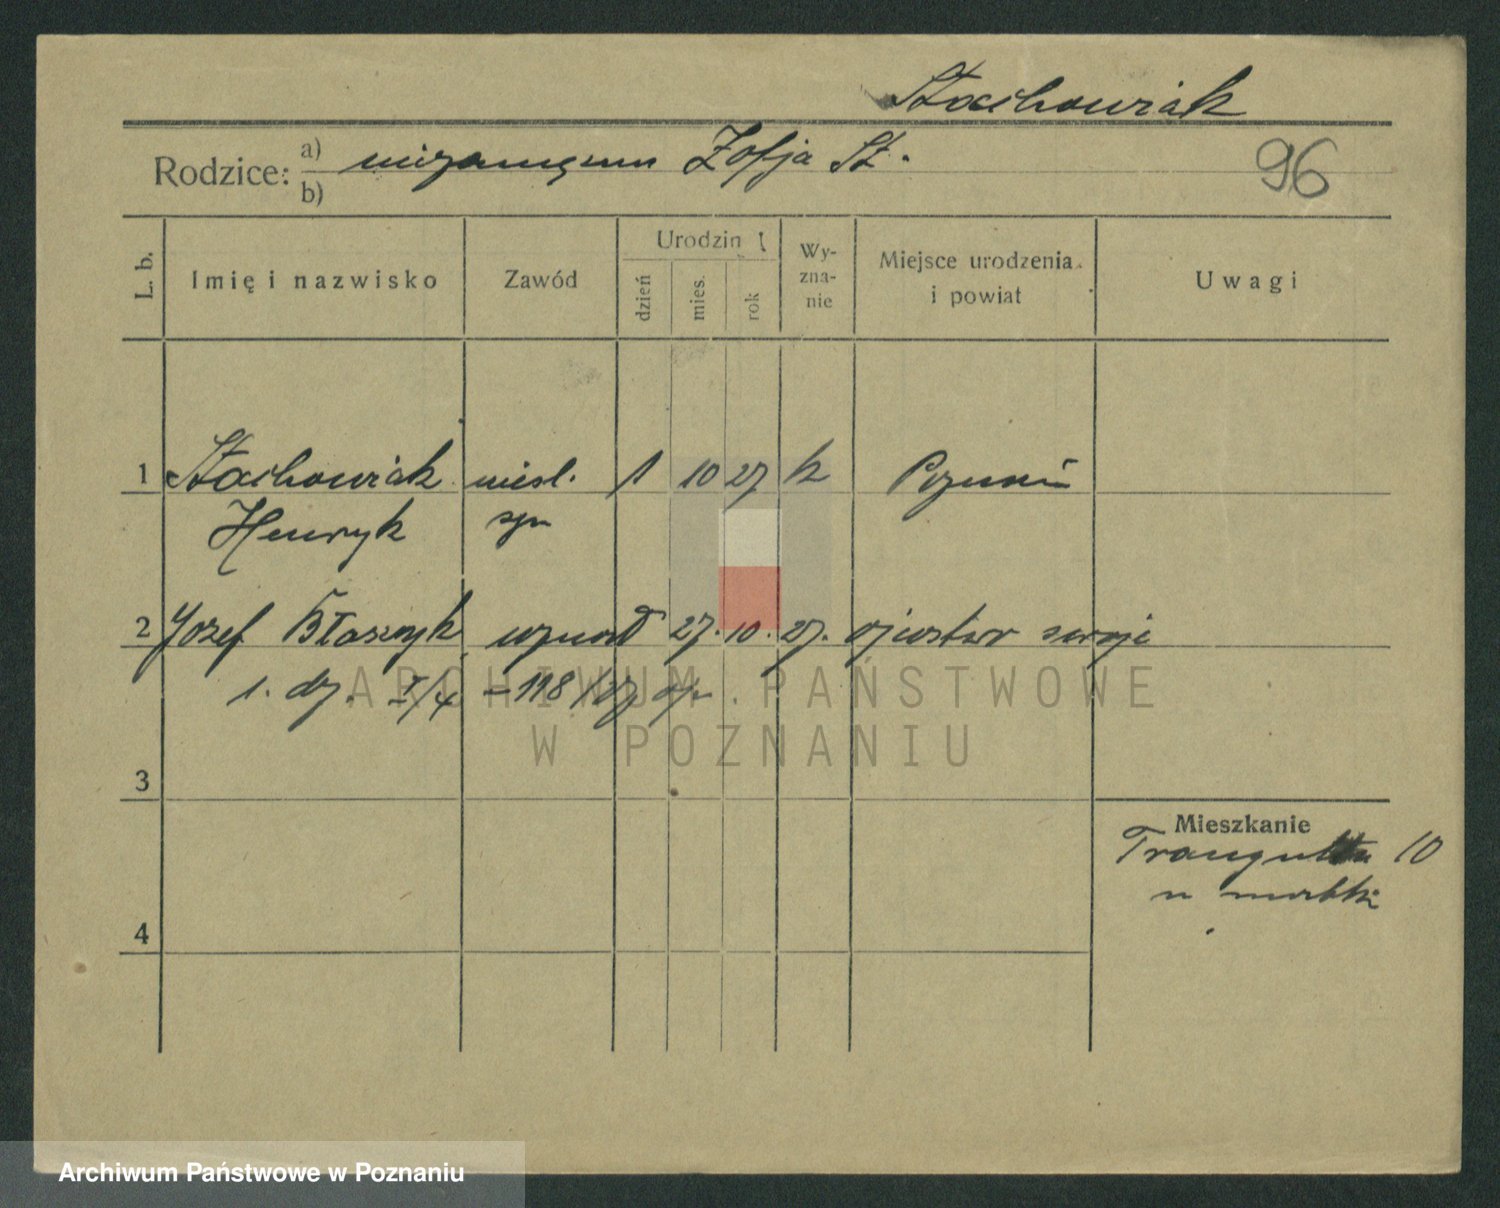 Stachowiak
Rodzice: a) niezamężna Zofja St.
b)
96
L. b.
Imię i nazwisko
Zawód
Urodzin
dzień
mies.
rok
Wy-
zna-
nie
Miejsce urodzenia
i powiat
Uwagi
1 Stachowiak nieśl. 1 10 27 k Poznań
Henryk syn
2 Józef Błaszczyk uznał 27. 10. 27. ojcostwo swoje
1. dz. I/4 – 118/27
3
4
Mieszkanie
Traugutta 10
u matki
ARCHIWUM PAŃSTWOWE
W POZNANIU
Archiwum Państwowe w Poznaniu